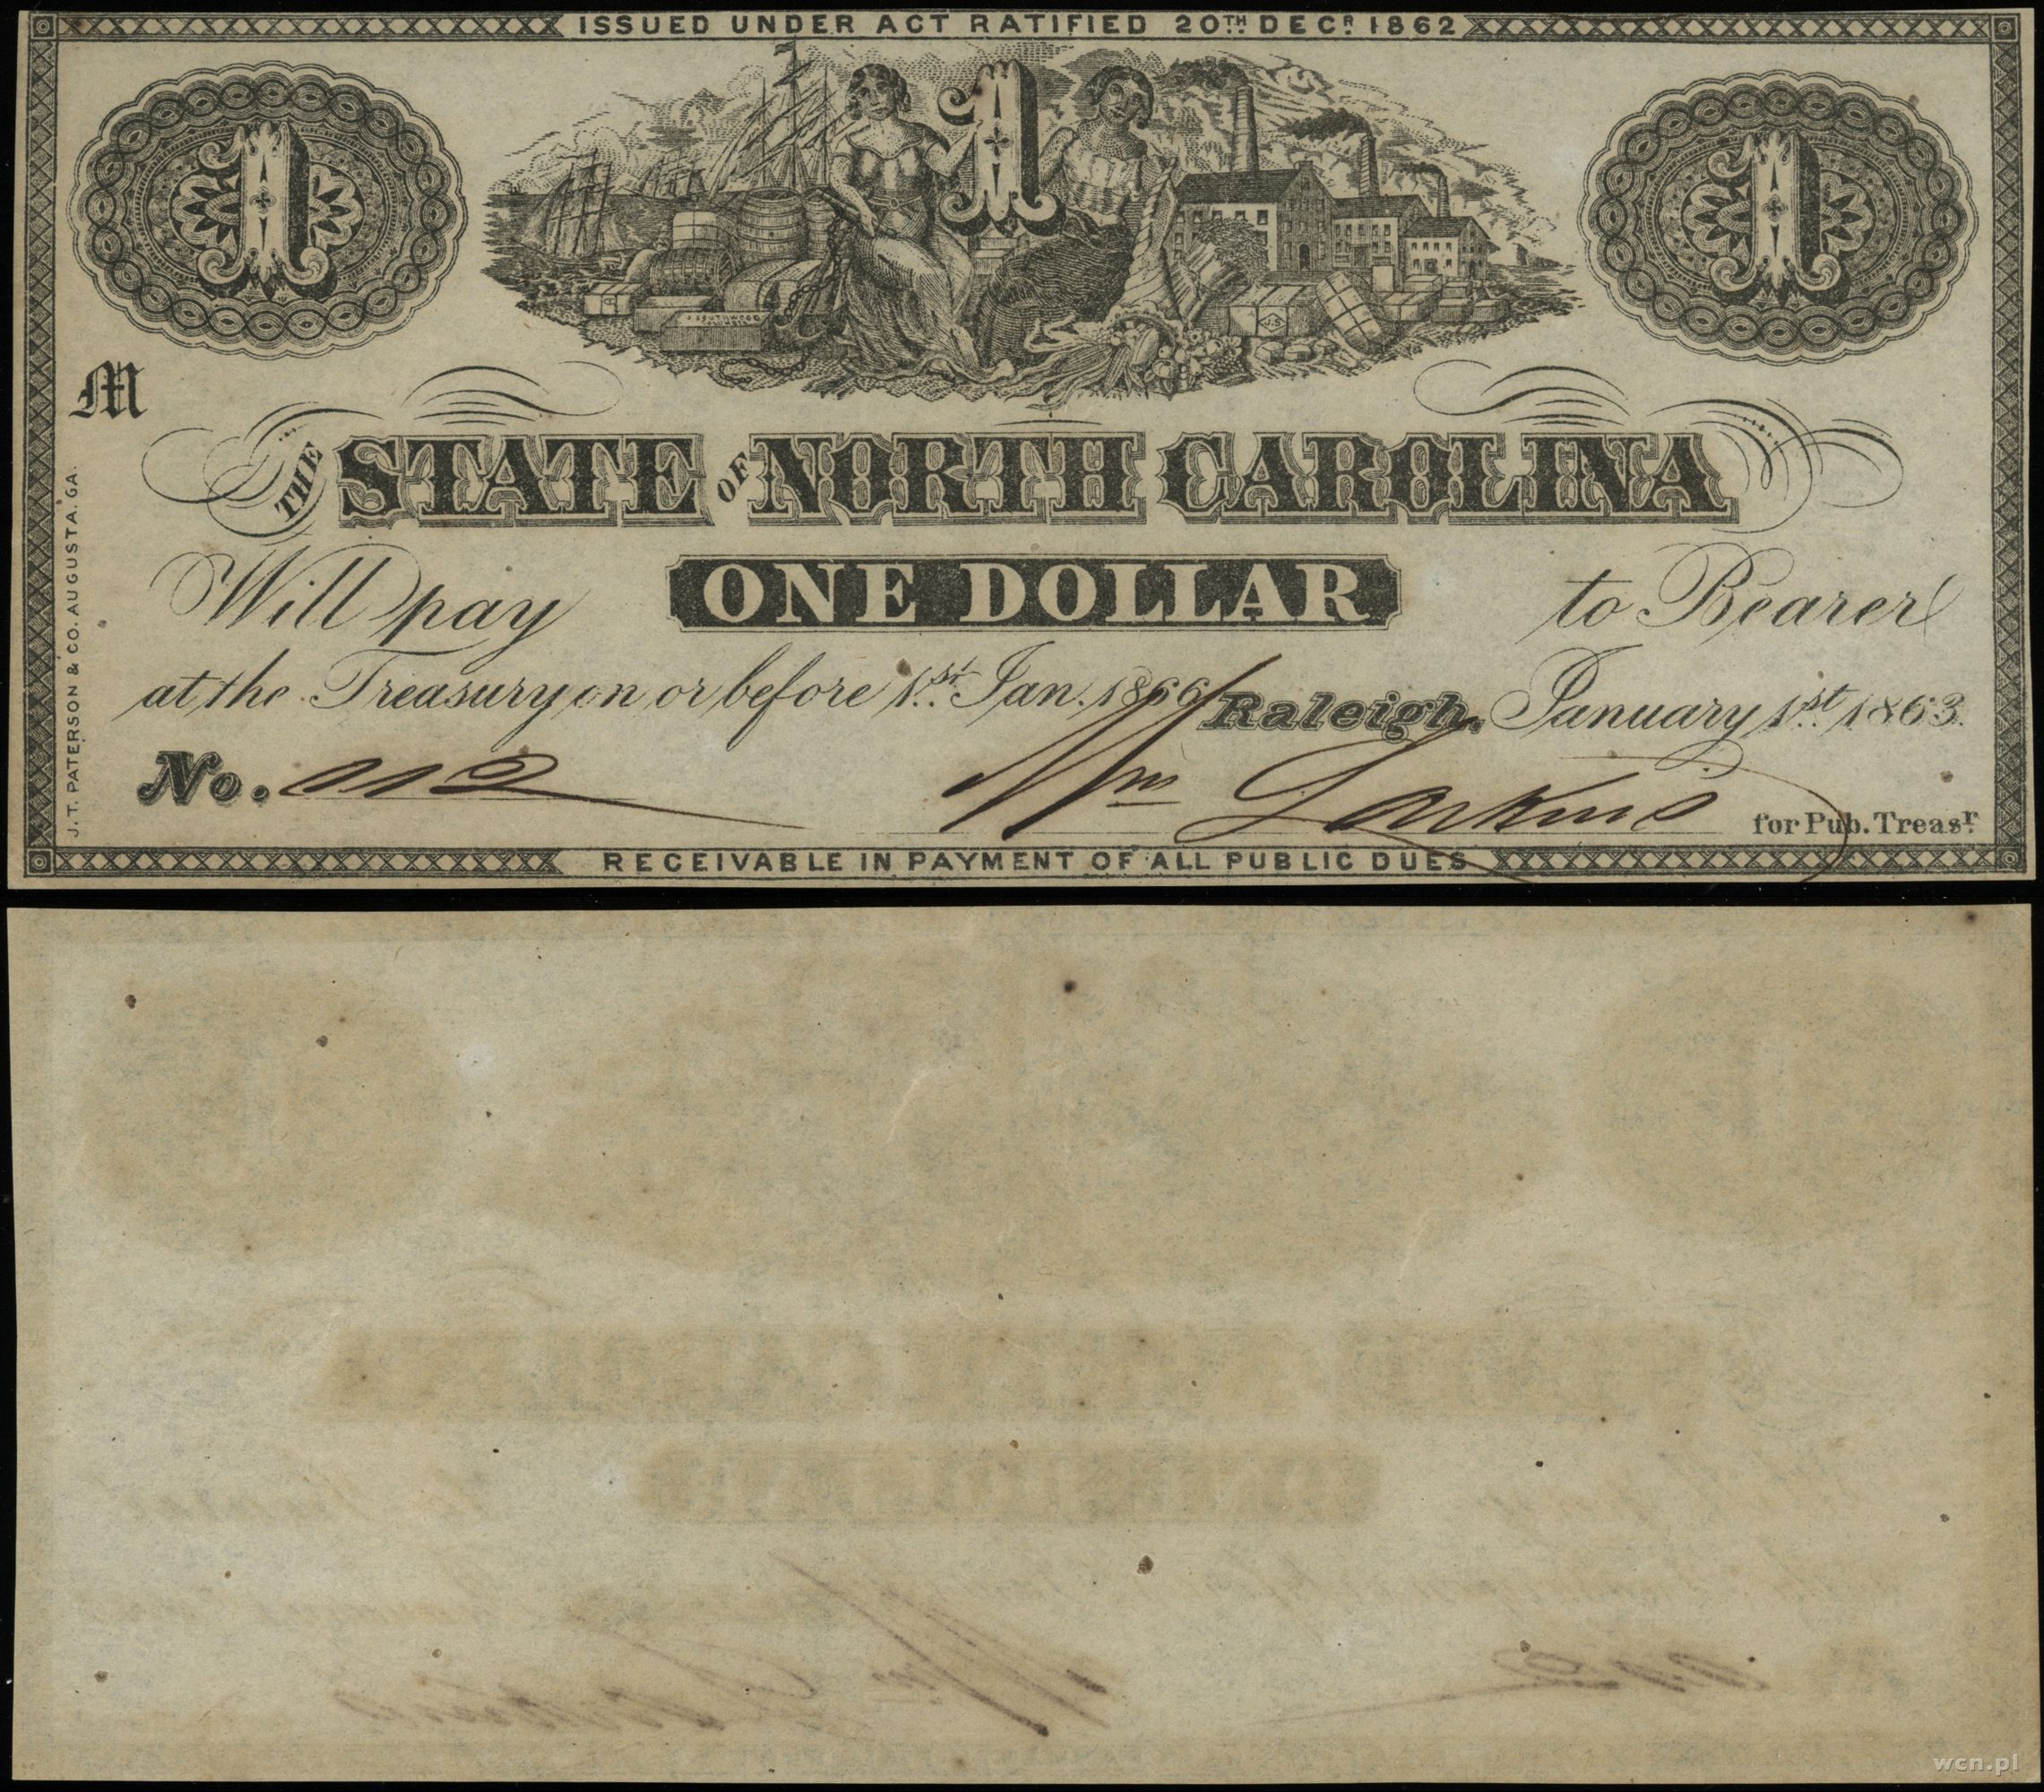 ISSUED UNDER ACT RATIFIED 20TH DECR 1862
1 1 1
J. SOUTHWOOD
COLUMBIA
J.S.
M
THE STATE OF NORTH CAROLINA
Will pay ONE DOLLAR to Bearer
at the Treasury on or before 1st Jan. 1866 Raleigh, January 1st 1863.
No. 112 Wm for Pub. Treasr
RECEIVABLE IN PAYMENT OF ALL PUBLIC DUES
J.T. PATERSON & CO. AUGUSTA, GA.
wcn.pl